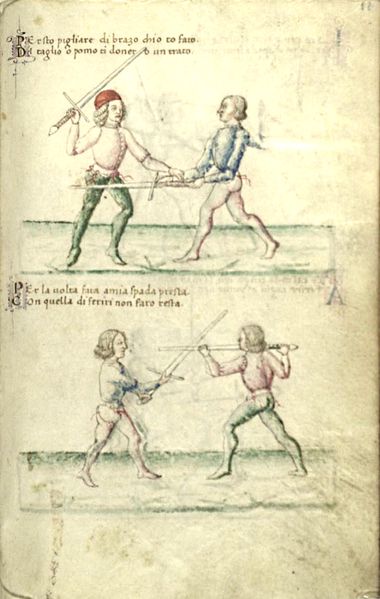 Per sto pigliare di brazo ch'io to fato
De taglio o pomo ti donerò un trato.
Per la volta fata a mia spada presta.
Con quella di ferirti non farò resta.